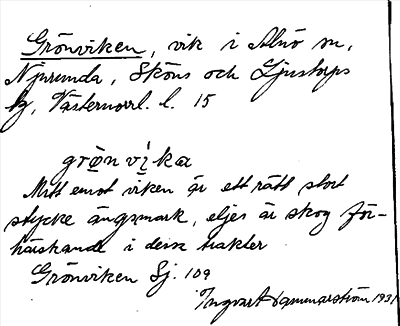 Grönviken, vik i Alnö sn,
Njurunda, Sköns och Ljustorps
tg, Västernorrl. l. 15
grönvika
Mitt emot viken är ett rätt stort
stycke ängsmark, eljes är skog för-
härskande i dessa trakter
Grönviken Sj. 109
Ingvart 1931